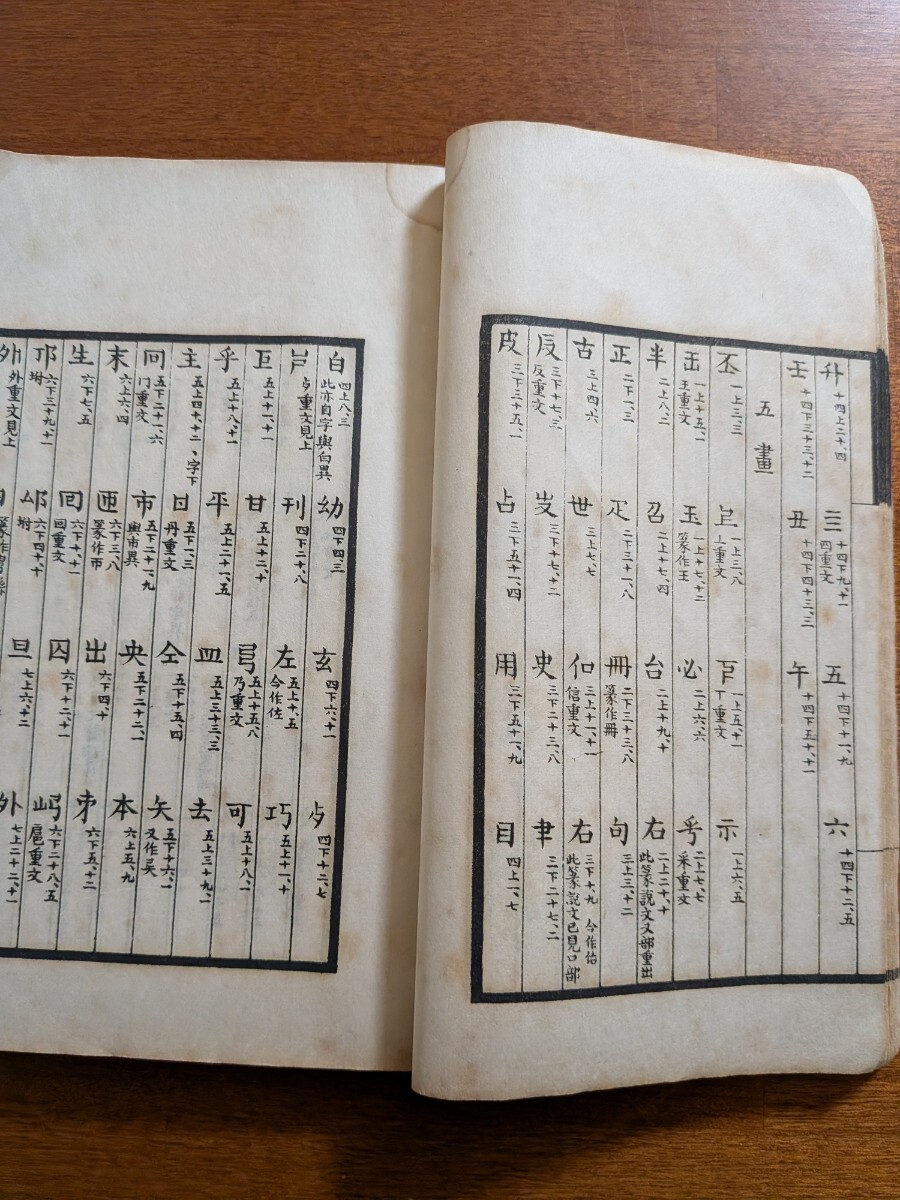 升 十四上二十、四 亖 十四下九、十一 四重文 五 十四下十一、九 六 十四下十二、五
壬 十四下三十三、十二 丑 十四下四十三、三 午 十四下五十、十一
五畫
丕 一上三、三 一上三、八 丄重文 一上五、十一 丅重文 示 一上六、五
一上十五、一 王重文 玉 一上十七、十二 篆作王 必 二上六、六 二上七、七 釆重文
半 二上八、二 召 二上十七、四 台 二上十九、十 右 二上二十、十 此篆說文又部重出
正 二下一、三 疋 二下三十一、八 冊 二下三十三、八 篆作冊 句 三上三、十二
古 三上四、六 世 三上七、七 㐰 三上十一、十一 信重文 右 三下十、九 今作佑 此篆說文已見口部
三下十七、三 反重文 三下十七、十二 史 三下二十三、八 肀 三下二十七、二
皮 三下三十五、一 占 三下五十一、四 用 三下五十一、九 目 四上一、七
白 四上八、三 此亦自字與白異 幼 四下四、三 玄 四下六、十一 歺 四下十二、七
歺重文見上 刊 四下二十、八 左 五上十、五 今作佐 巧 五上十一、十
巨 五上十一、十一 甘 五上十二、十 五上十五、八 乃重文 可 五上十八、一
乎 五上十八、十一 平 五上二十一、五 皿 五上三十三、三 去 五上三十九、一
主 五上四十、十二 丶字下 五下一、三 丹重文 仝 五下十五、四 矢 五下十六、一 又作㕦
冋 五下二十一、六 冂重文 市 五下二十一、九 與巿異 央 五下二十二、一 本 六上五、九
末 六上六、四 匝 六下三、八 篆作帀 出 六下四、十 六下五、十二
生 六下七、五 囘 六下十、十一 回重文 囚 六下十二、十一
邛 六下三十九、十一 坿 六下四十、十 坿 旦 七上六、十二 六下二十八、五 扈重文
外 外重文見上 外 七上二十二、十一